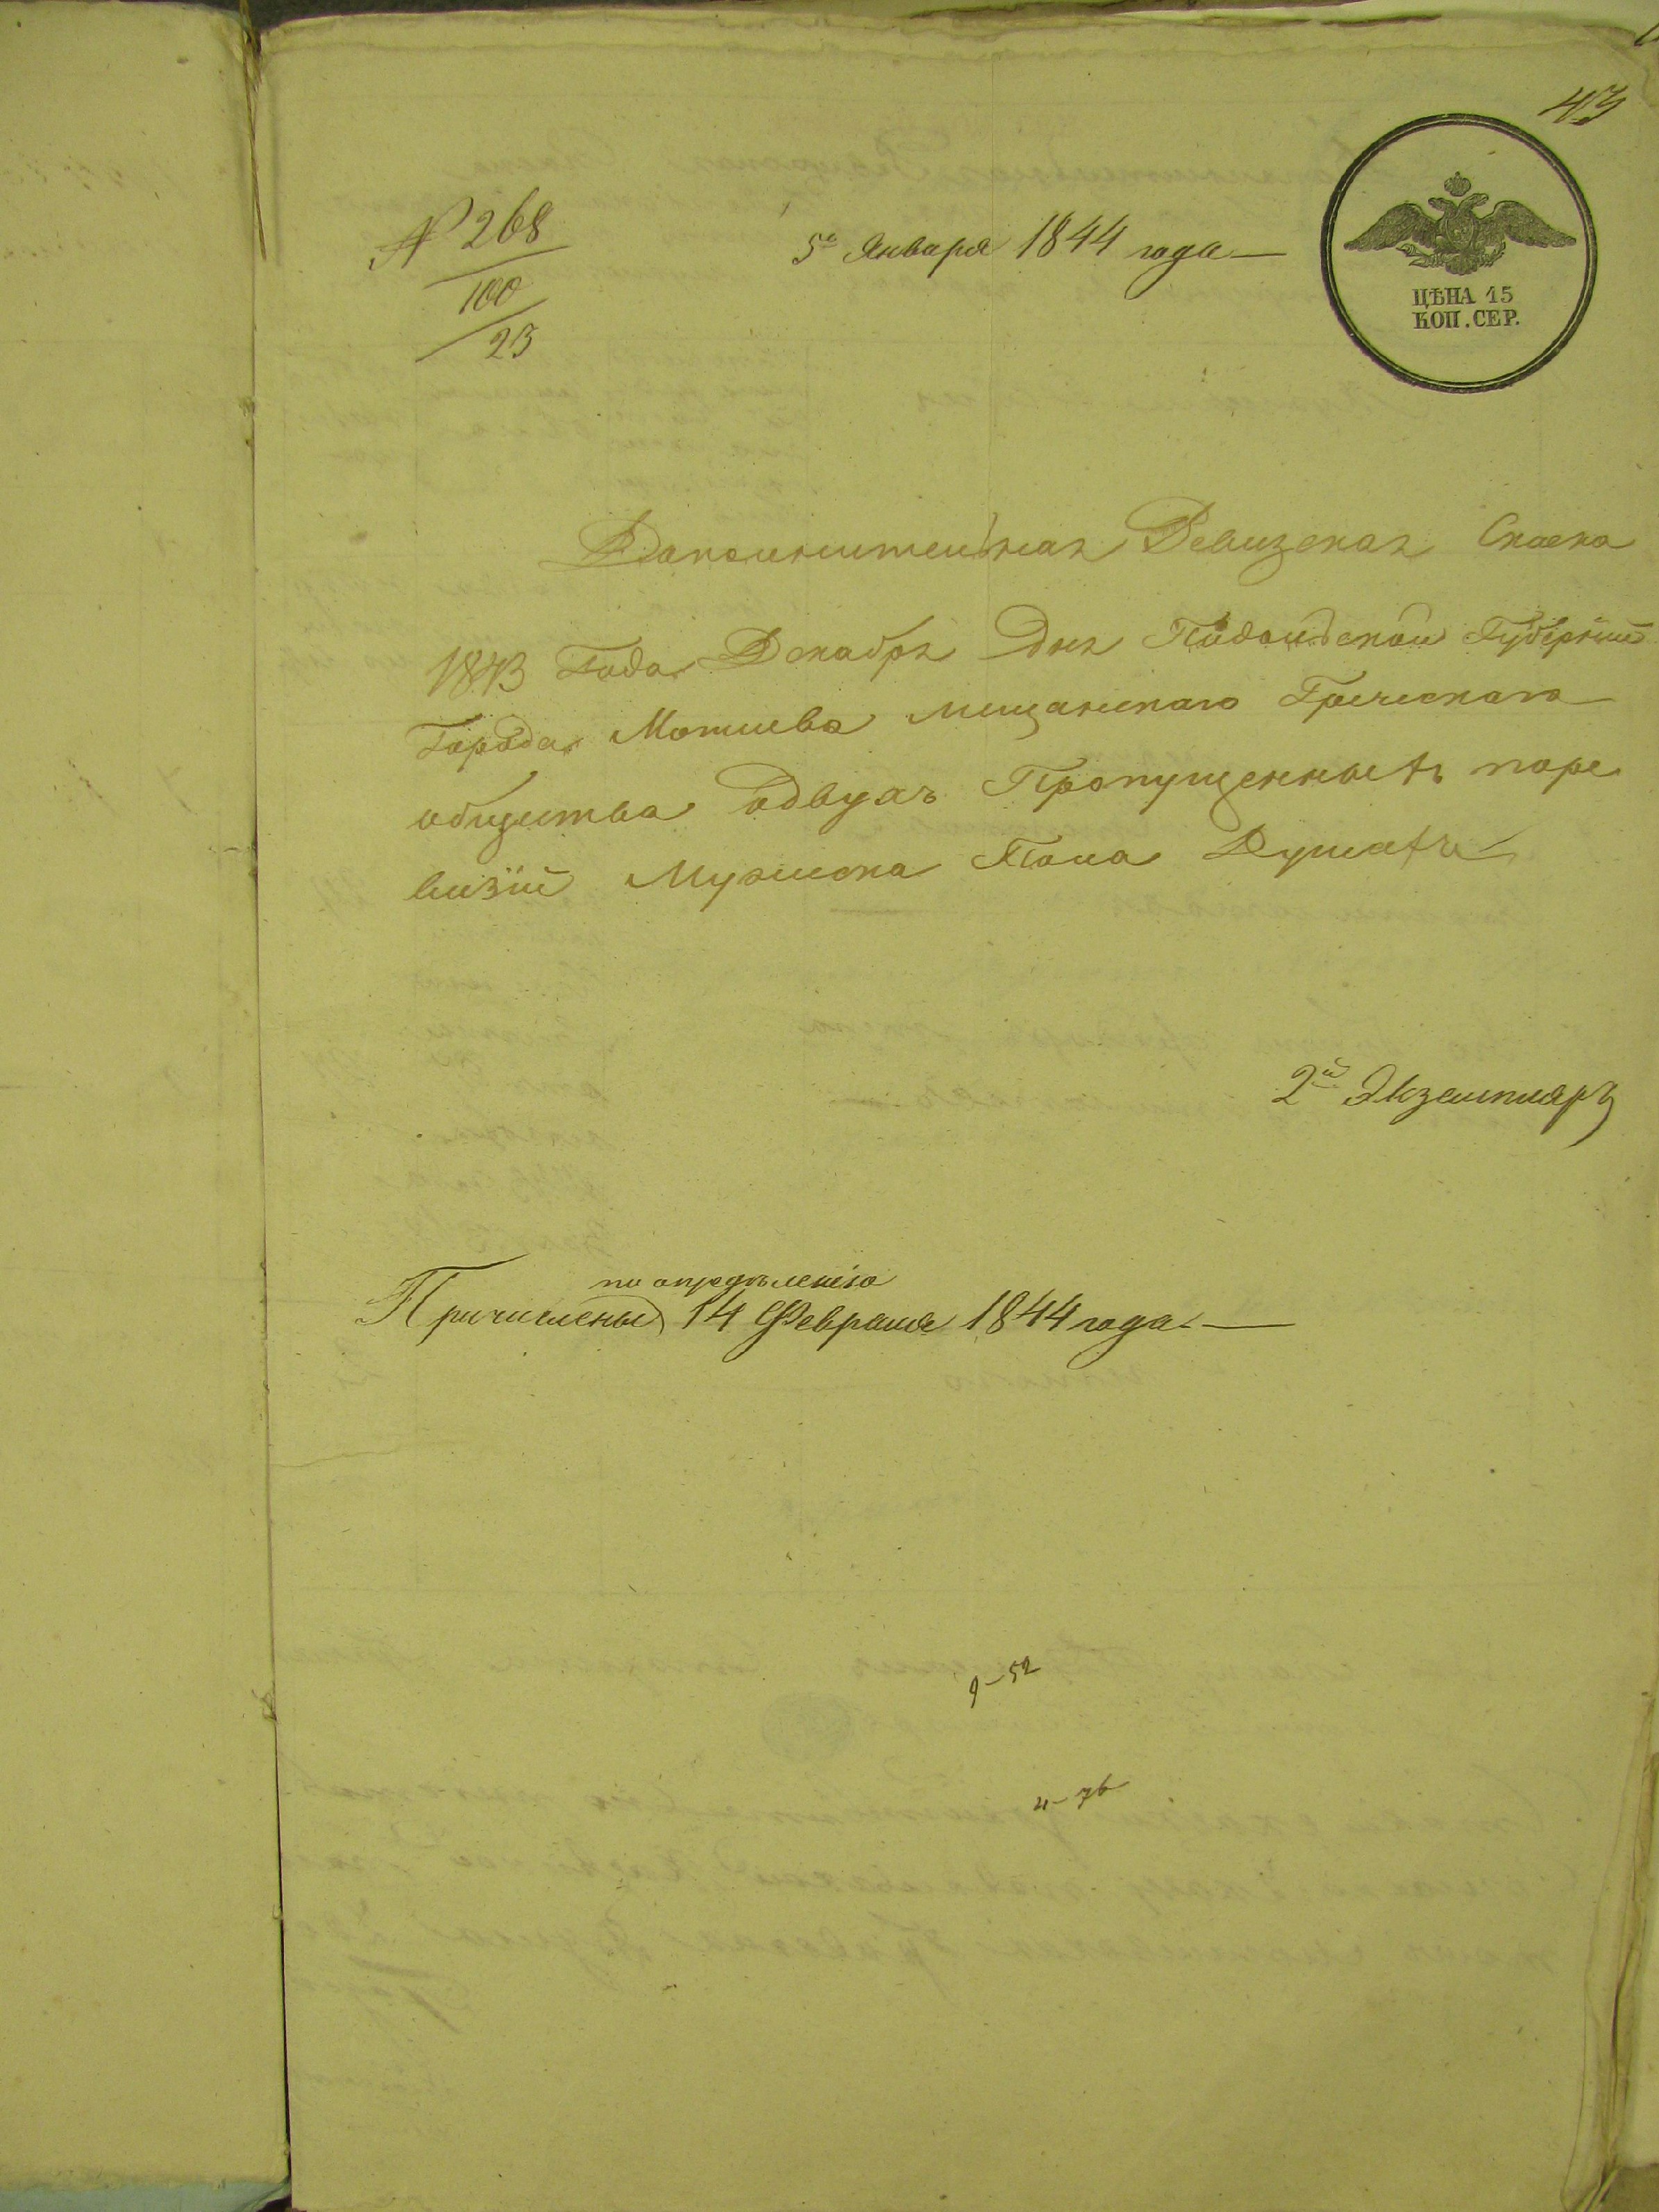 43
№ 268
100
23
5го Января 1844 года
ЦѢНА 15
КОП. СЕР.
Дополнительная Ревизская Скаска
1843 Года Декабря дня Подольской Губерніи
Города Могилева мещанскаго Греческаго
общества одвухъ Пропущенныхъ поре
визіи Мужеска Пола Душахъ
2й Экземпляръ
по опредѣленію
Причислены 14 Февраля 1844 года
9-52
4-76